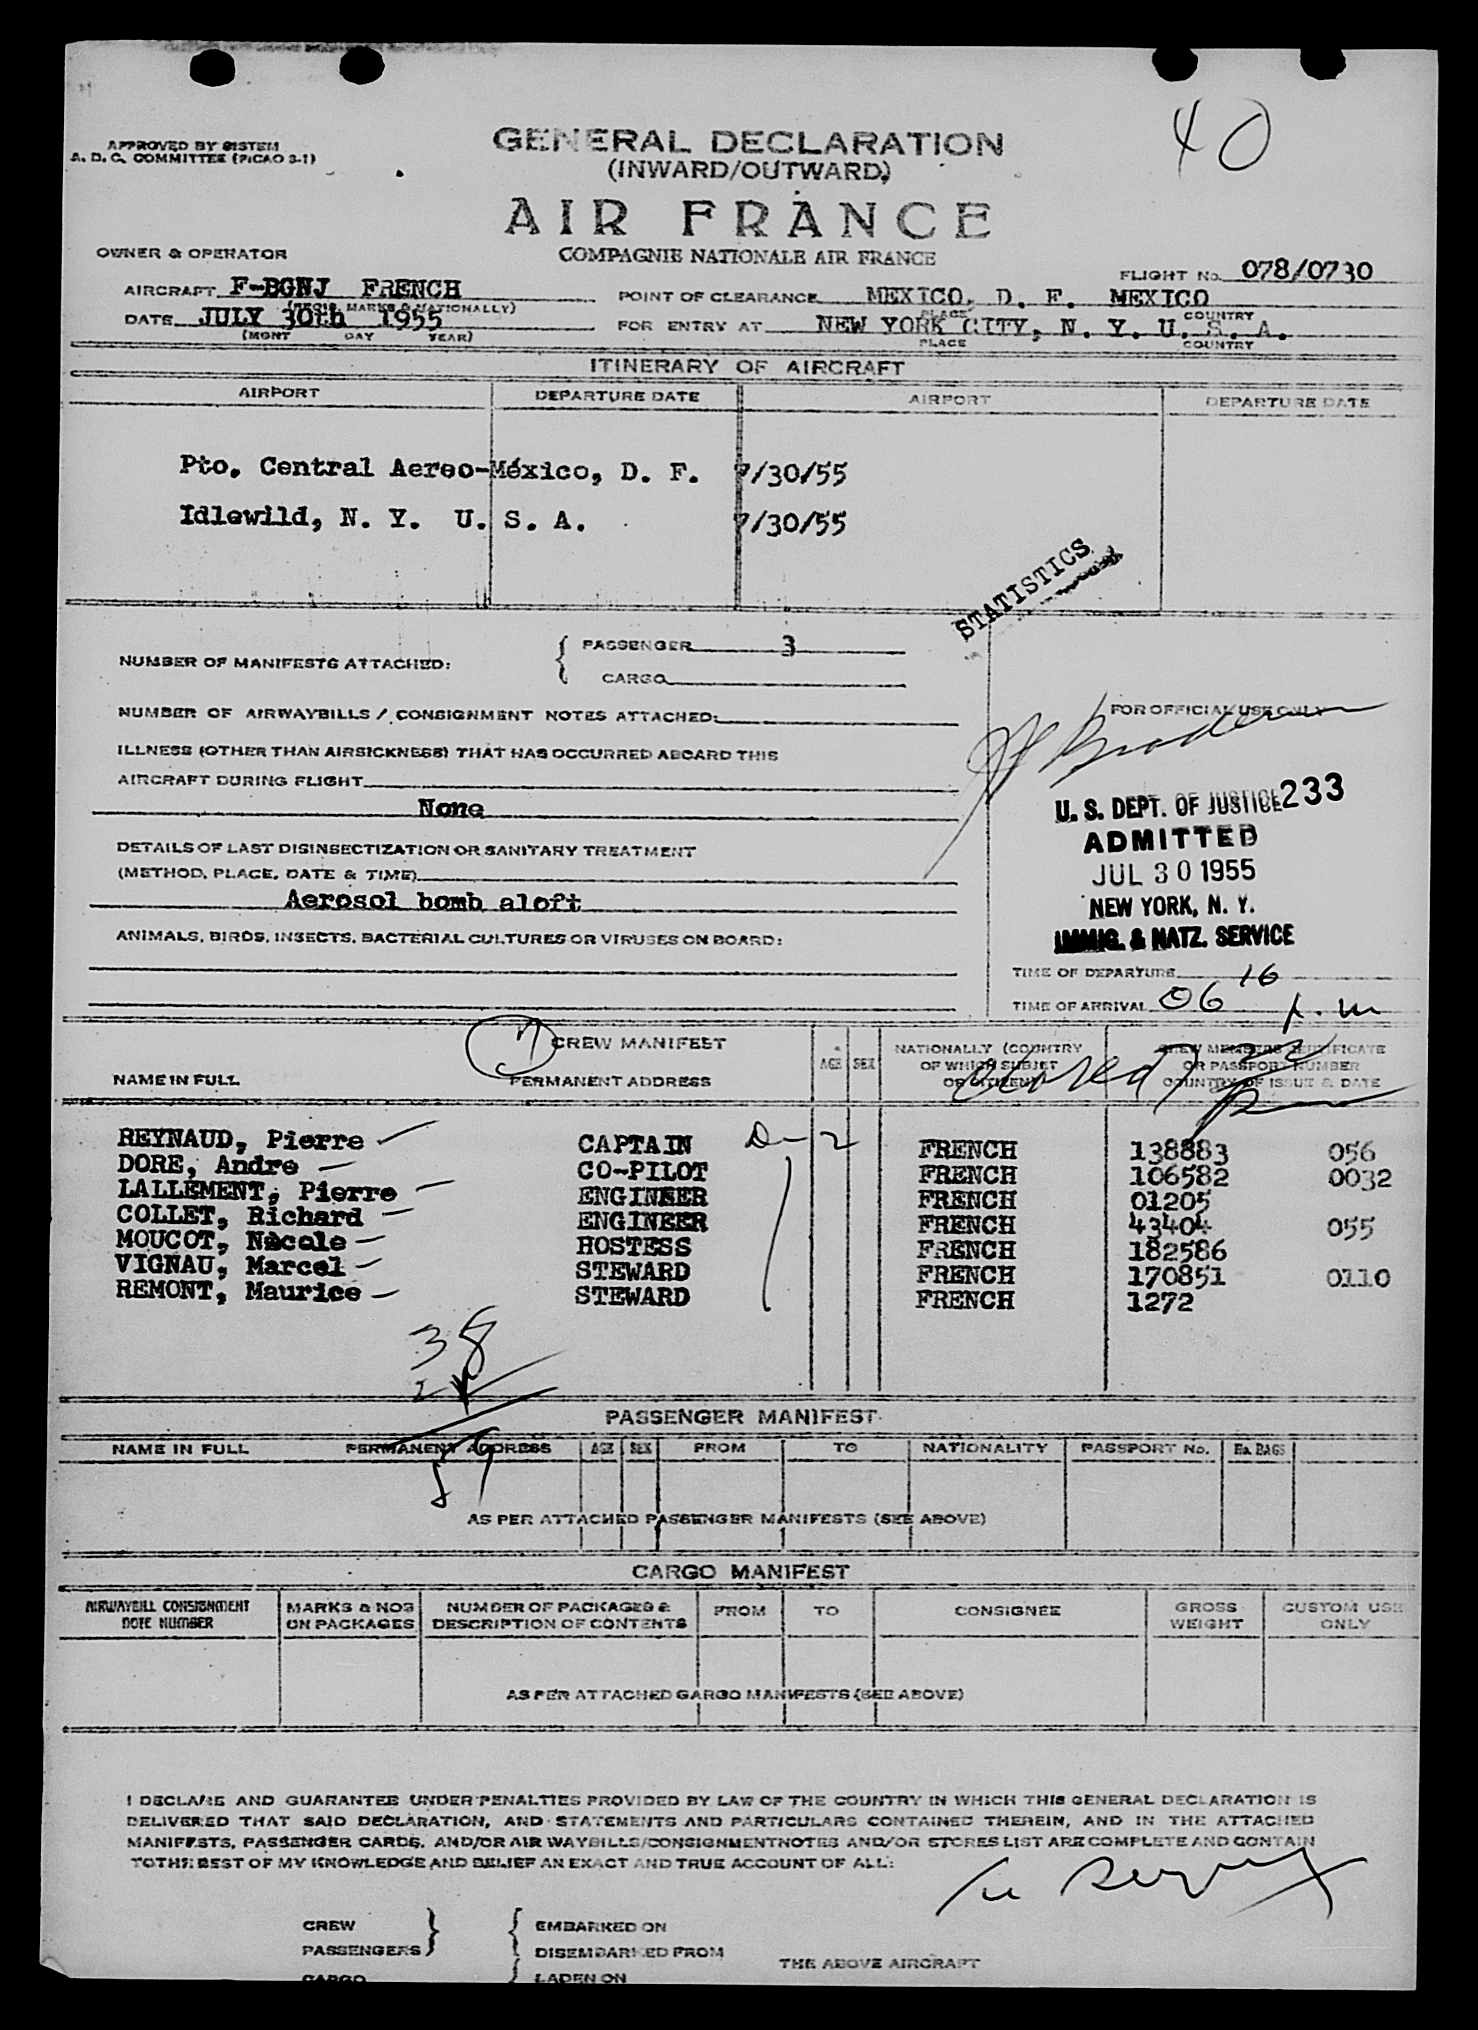 40
APPROVED BY SISTEM
A. D. C. COMMITTEE (PICAO 3-1)
GENERAL DECLARATION
(INWARD/OUTWARD)
AIR FRANCE
COMPAGNIE NATIONALE AIR FRANCE
OWNER & OPERATOR
FLIGHT No. 078/0730
AIRCRAFT F-BGNJ FRENCH
POINT OF CLEARANCE MEXICO, D. F. MEXICO
PLACE COUNTRY
DATE JULY 30th 1955
(MONT DAY YEAR)
FOR ENTRY AT NEW YORK CITY, N. Y. U. S. A.
PLACE COUNTRY
ITINERARY OF AIRCRAFT
AIRPORT DEPARTURE DATE AIRPORT DEPARTURE DATE
Pto. Central Aereo-México, D. F. 7/30/55
Idlewild, N. Y. U. S. A. 7/30/55
STATISTICS
NUMBER OF MANIFESTS ATTACHED:
PASSENGER 3
CARGO
NUMBER OF AIRWAYBILLS / CONSIGNMENT NOTES ATTACHED:
FOR OFFICIAL USE ONLY
ILLNESS (OTHER THAN AIRSICKNESS) THAT HAS OCCURRED ABOARD THIS
AIRCRAFT DURING FLIGHT
None
DETAILS OF LAST DISINSECTIZATION OR SANITARY TREATMENT
(METHOD, PLACE, DATE & TIME)
Aerosol bomb aloft
ANIMALS, BIRDS, INSECTS, BACTERIAL CULTURES OR VIRUSES ON BOARD:
U. S. DEPT. OF JUSTICE 233
ADMITTED
JUL 30 1955
NEW YORK, N. Y.
IMMIG. & NATZ. SERVICE
TIME OF DEPARTURE 16
TIME OF ARRIVAL 06 p.m
7 CREW MANIFEST
NAME IN FULL PERMANENT ADDRESS AGE SEX
NATIONALLY (COUNTRY
OF WHICH SUBJET
OR CITIZEN)
CREW MEMBERS CERTIFICATE
OR PASSPORT NUMBER
COUNTRY OF ISSUE & DATE
REYNAUD, Pierre CAPTAIN D-2 FRENCH 138883 056
DORE, Andre CO-PILOT FRENCH 106582 0032
LALLEMENT, Pierre ENGINEER FRENCH 01205
COLLET, Richard ENGINEER FRENCH 43404 055
MOUCOT, Nicole HOSTESS FRENCH 182586
VIGNAU, Marcel STEWARD FRENCH 170851 0110
REMONT, Maurice STEWARD FRENCH 1272
38
PASSENGER MANIFEST
NAME IN FULL PERMANENT ADDRESS AGE SEX FROM TO NATIONALITY PASSPORT No. Ea. BAGS
AS PER ATTACHED PASSENGER MANIFESTS (SEE ABOVE)
CARGO MANIFEST
AIRWAYBILL CONSIGNMENT
NOTE NUMBER
MARKS & NOS
ON PACKAGES
NUMBER OF PACKAGES &
DESCRIPTION OF CONTENTS
FROM TO CONSIGNEE
GROSS
WEIGHT
CUSTOM USE
ONLY
AS PER ATTACHED GARGO MANIFESTS (SEE ABOVE)
I DECLARE AND GUARANTEE UNDER PENALTIES PROVIDED BY LAW OF THE COUNTRY IN WHICH THIS GENERAL DECLARATION IS
DELIVERED THAT SAID DECLARATION, AND STATEMENTS AND PARTICULARS CONTAINED THEREIN, AND IN THE ATTACHED
MANIFESTS, PASSENGER CARDS, AND/OR AIR WAYBILLS/CONSIGNMENTNOTES AND/OR STORES LIST ARE COMPLETE AND CONTAIN
TOTHE BEST OF MY KNOWLEDGE AND BELIEF AN EXACT AND TRUE ACCOUNT OF ALL:
CREW
PASSENGERS
CARGO
EMBARKED ON
DISEMBARKED FROM
LADEN ON
THE ABOVE AIRCRAFT